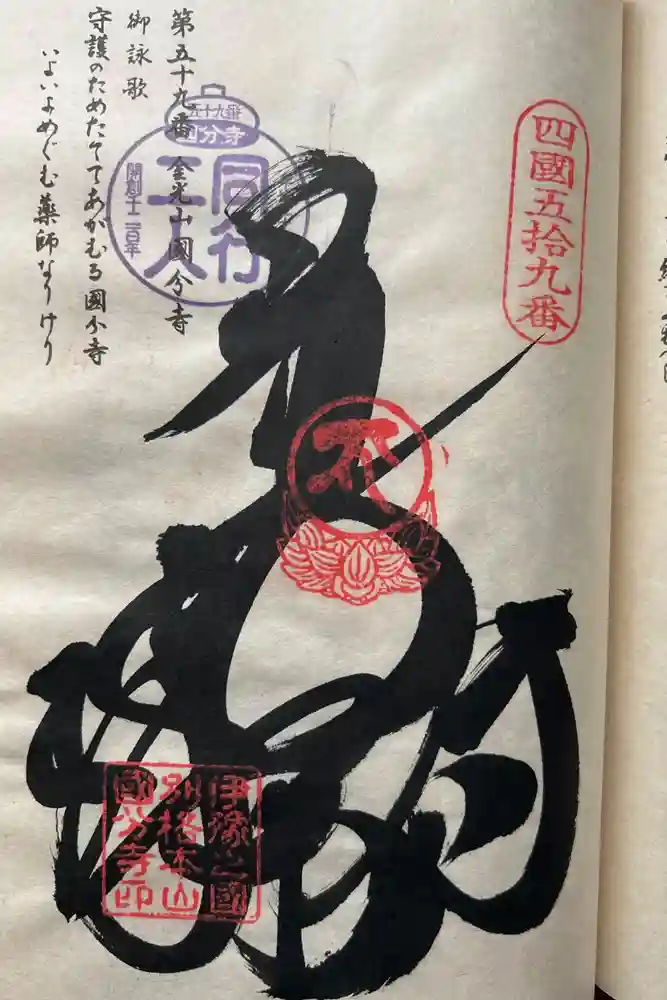 四國五拾九番
第五十九番 金光山國分寺
御詠歌
守護のためたててあがむる國分寺
いよいよめぐむ薬師なりけり
五十九番
國分寺
同行
二人
開創千二百年
伊豫之國
別格本山
國分寺印